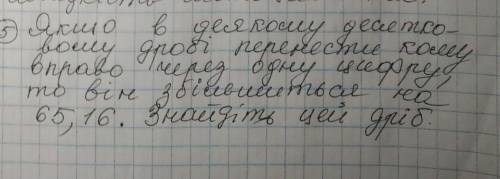 5) Якщо в деякому десятко-
вому дробі перенести кому
вправо через одну цифру,
то він збільшиться на
65,16. Знайдіть цей дріб.